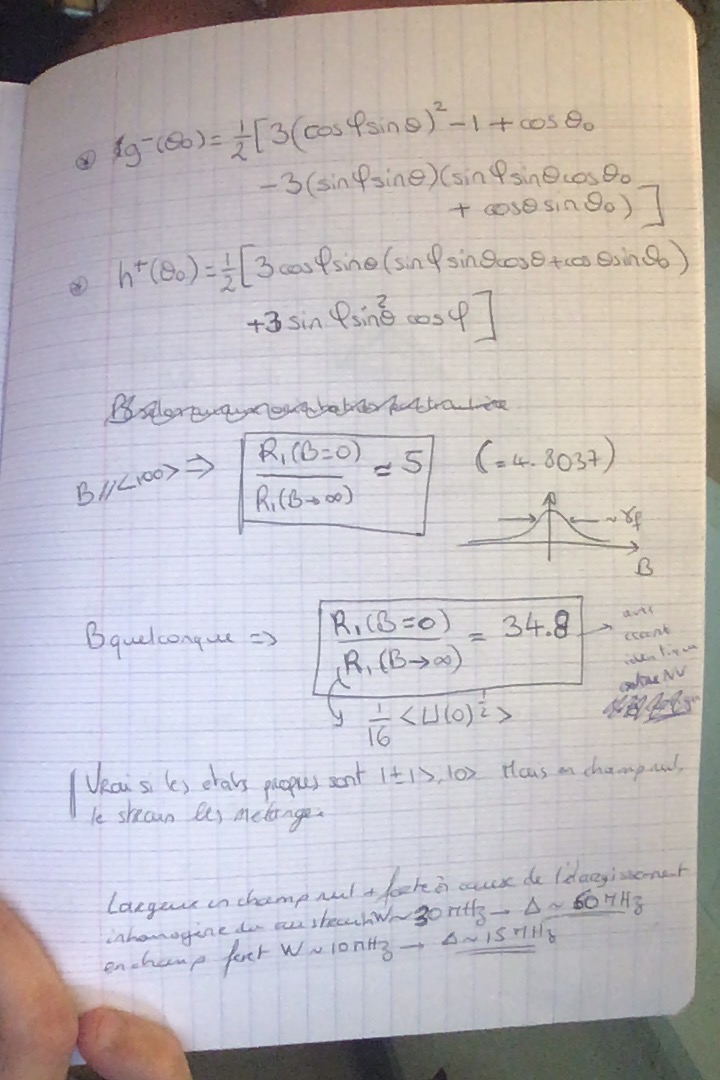 g⁻(θ₀) = 1/2 [ 3(cosφ sinθ)² - 1 + cosθ₀
- 3(sinφ sinθ)(sinφ sinθ cosθ₀
+ cosθ sinθ₀) ]
h⁺(θ₀) = 1/2 [ 3 cosφ sinθ (sinφ sinθ cosθ + cosθ sinθ₀)
+ 3 sinφ sin²θ cosφ ]
B // <100> ⇒ R₁(B=0) / R₁(B→∞) ≈ 5 (= 4.8037)
~ γf
B
B quelconque ⇒ R₁(B=0) / R₁(B→∞) = 34.8 → avec
écart
identique
NV
1/16 <U(0)^1/2>
Vrai si les etats propres sont |±1>, |0> Mais en champ nul,
le strain les mélange.
Largeur en champ nul + forte à cause de l'élargissement
inhomogène du au strain W ~ 30 MHz → Δ ~ 60 MHz
en champ fort W ~ 10 MHz → Δ ~ 15 MHz